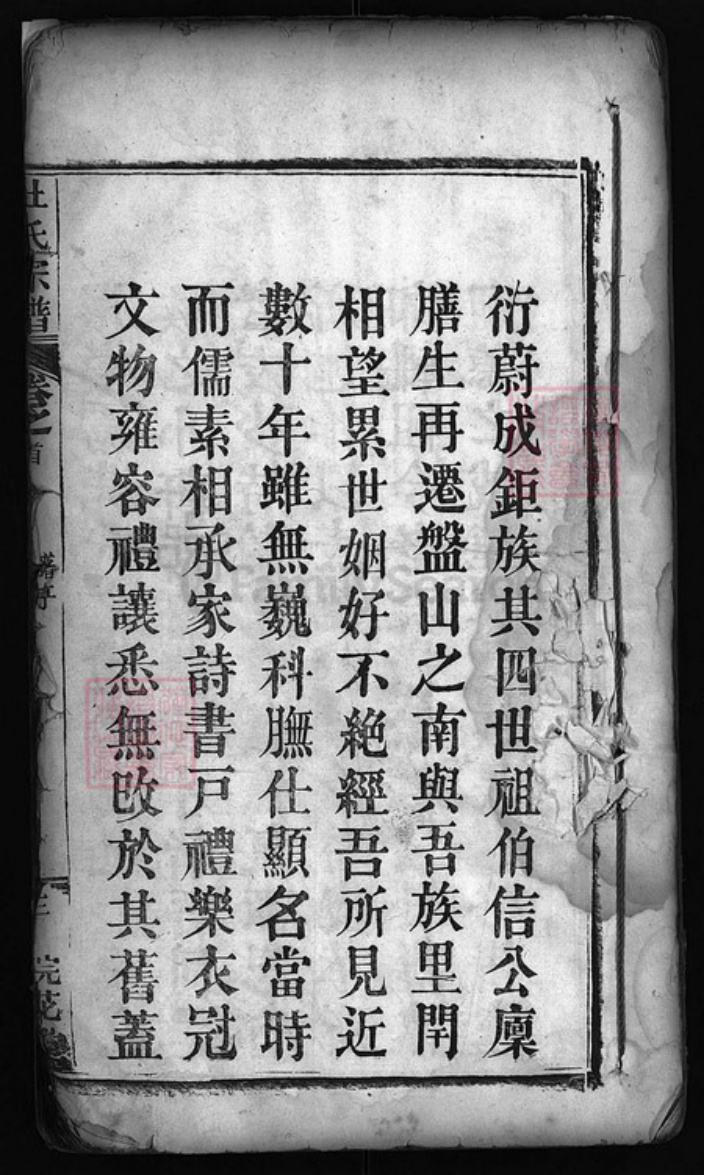 衍蔚成鉅族其四世祖伯信公廩
膳生再遷盤山之南與吾族里閈
相望累世姻好不絶經吾所見近
數十年雖無巍科膴仕顯名當時
而儒素相承家詩書戸禮樂衣冠
文物雍容禮讓悉無改於其舊蓋
杜氏宗譜 卷之首 舊序 三 浣花